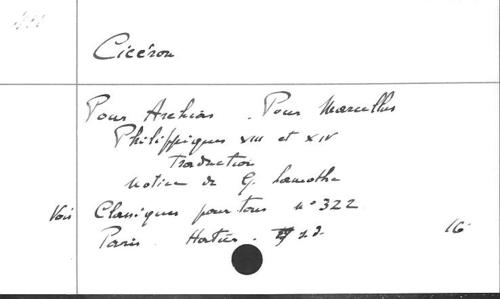 Cicéron
Pour Archias. Pour Marcellus
Philippiques VIII et XIV
Traduction
Notice de G. Lamothe
Voir Classiques pour tous n° 322
Paris. Hatier. 16